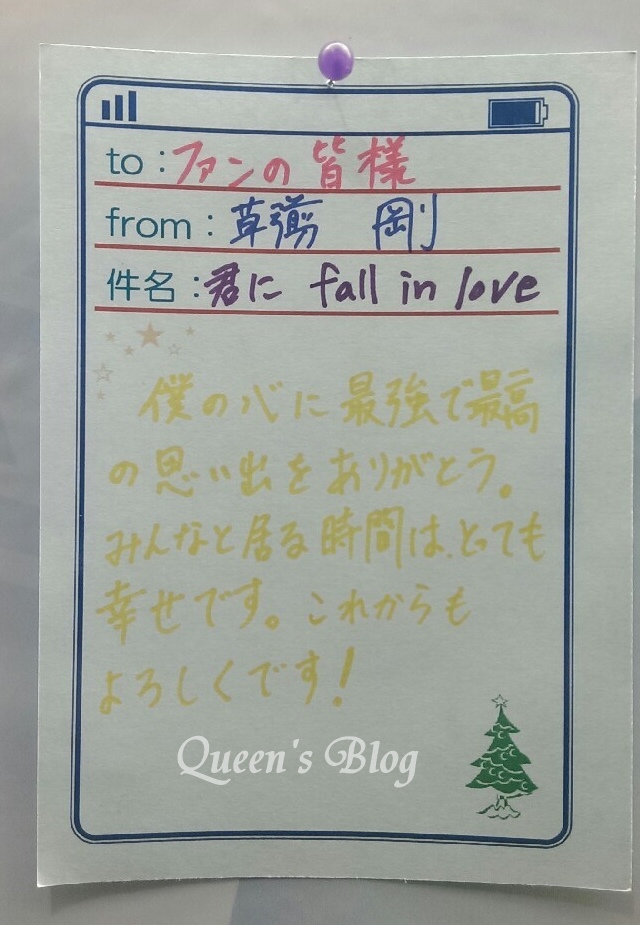 to：ファンの皆様
from：草彅 剛
件名：君に fall in love
僕の心に最強で最高
の思い出をありがとう。
みんなと居る時間は、とっても
幸せです。これからも
よろしくです！
Queen's Blog